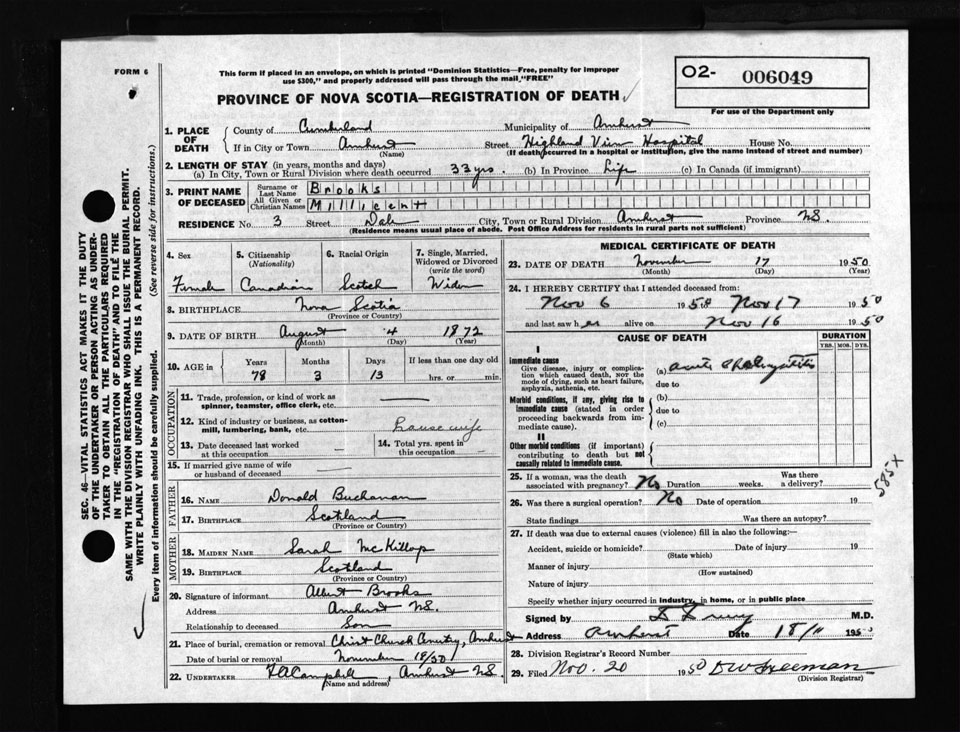 FORM 6
This form if placed in an envelope, on which is printed "Dominion Statistics—Free, penalty for improper
use $300," and properly addressed will pass through the mail "FREE"
O2- 006049
PROVINCE OF NOVA SCOTIA—REGISTRATION OF DEATH
For use of the Department only
1. PLACE OF DEATH
County of Cumberland Municipality of Amherst
If in City or Town Amherst Street Highland View Hospital House No.
(Name) (If death occurred in a hospital or institution, give the name instead of street and number)
2. LENGTH OF STAY (in years, months and days)
(a) In City, Town or Rural Division where death occurred 33 yrs. (b) In Province Life (c) In Canada (if immigrant)
3. PRINT NAME OF DECEASED
Surname or Last Name Brooks
All Given or Christian Names Millicent
RESIDENCE No. 3 Street Dale City, Town or Rural Division Amherst Province NS.
(Residence means usual place of abode. Post Office Address for residents in rural parts not sufficient)
4. Sex Female
5. Citizenship (Nationality) Canadian
6. Racial Origin Scotch
7. Single, Married, Widowed or Divorced (write the word) Widow
8. BIRTHPLACE Nova Scotia
(Province or Country)
9. DATE OF BIRTH August 4 1872
(Month) (Day) (Year)
10. AGE in Years 78 Months 3 Days 13 If less than one day old
hrs. or min.
OCCUPATION
11. Trade, profession, or kind of work as
spinner, teamster, office clerk, etc. —
12. Kind of industry or business, as cotton-
mill, lumbering, bank, etc. housewife
13. Date deceased last worked
at this occupation —
14. Total yrs. spent in
this occupation —
15. If married give name of wife
or husband of deceased —
FATHER
16. NAME Donald Buchanan
17. BIRTHPLACE Scotland
(Province or Country)
MOTHER
18. MAIDEN NAME Sarah McKillop
19. BIRTHPLACE Scotland
(Province or Country)
20. Signature of informant Albert Brooks
Address Amherst NS.
Relationship to deceased Son
21. Place of burial, cremation or removal Christ Church Cemetry, Amherst
Date of burial or removal November 18/50
22. UNDERTAKER FACampbell, Amherst NS.
(Name and address)
MEDICAL CERTIFICATE OF DEATH
23. DATE OF DEATH November 17 1950
(Month) (Day) (Year)
24. I HEREBY CERTIFY that I attended deceased from:
Nov 6 1950 to Nov 17 1950
and last saw her alive on Nov 16 1950
CAUSE OF DEATH
DURATION
YRS. MOS. DYS.
I
Immediate cause
Give disease, injury or complica-
tion which caused death, NOT the
mode of dying, such as heart failure,
asphyxia, asthenia, etc.
(a) acute
due to
Morbid conditions, if any, giving rise to
immediate cause (stated in order
proceeding backwards from im-
mediate cause).
(b)
due to
(c)
II
Other morbid conditions (if important)
contributing to death but not
causally related to immediate cause.
25. If a woman, was the death
associated with pregnancy? No Duration weeks. Was there
a delivery?
585X
26. Was there a surgical operation? No Date of operation 19
State findings Was there an autopsy?
27. If death was due to external causes (violence) fill in also the following:—
Accident, suicide or homicide? Date of injury 19
(State which)
Manner of injury
(How sustained)
Nature of injury
Specify whether injury occurred in industry, in home, or in public place
Signed by M.D.
Address Amherst Date 18/11 1950
28. Division Registrar's Record Number
29. Filed Nov. 20 1950 DW Freeman
(Division Registrar)
SEC. 46—VITAL STATISTICS ACT MAKES IT THE DUTY
OF THE UNDERTAKER OR PERSON ACTING AS UNDER-
TAKER TO OBTAIN ALL THE PARTICULARS REQUIRED
IN THE "REGISTRATION OF DEATH AND TO FILE THE
SAME WITH THE DIVISION REGISTRAR WHO SHALL ISSUE THE BURIAL PERMIT.
WRITE PLAINLY WITH UNFADING INK. THIS IS A PERMANENT RECORD.
Every item of information should be carefully supplied. (See reverse side for instructions.)